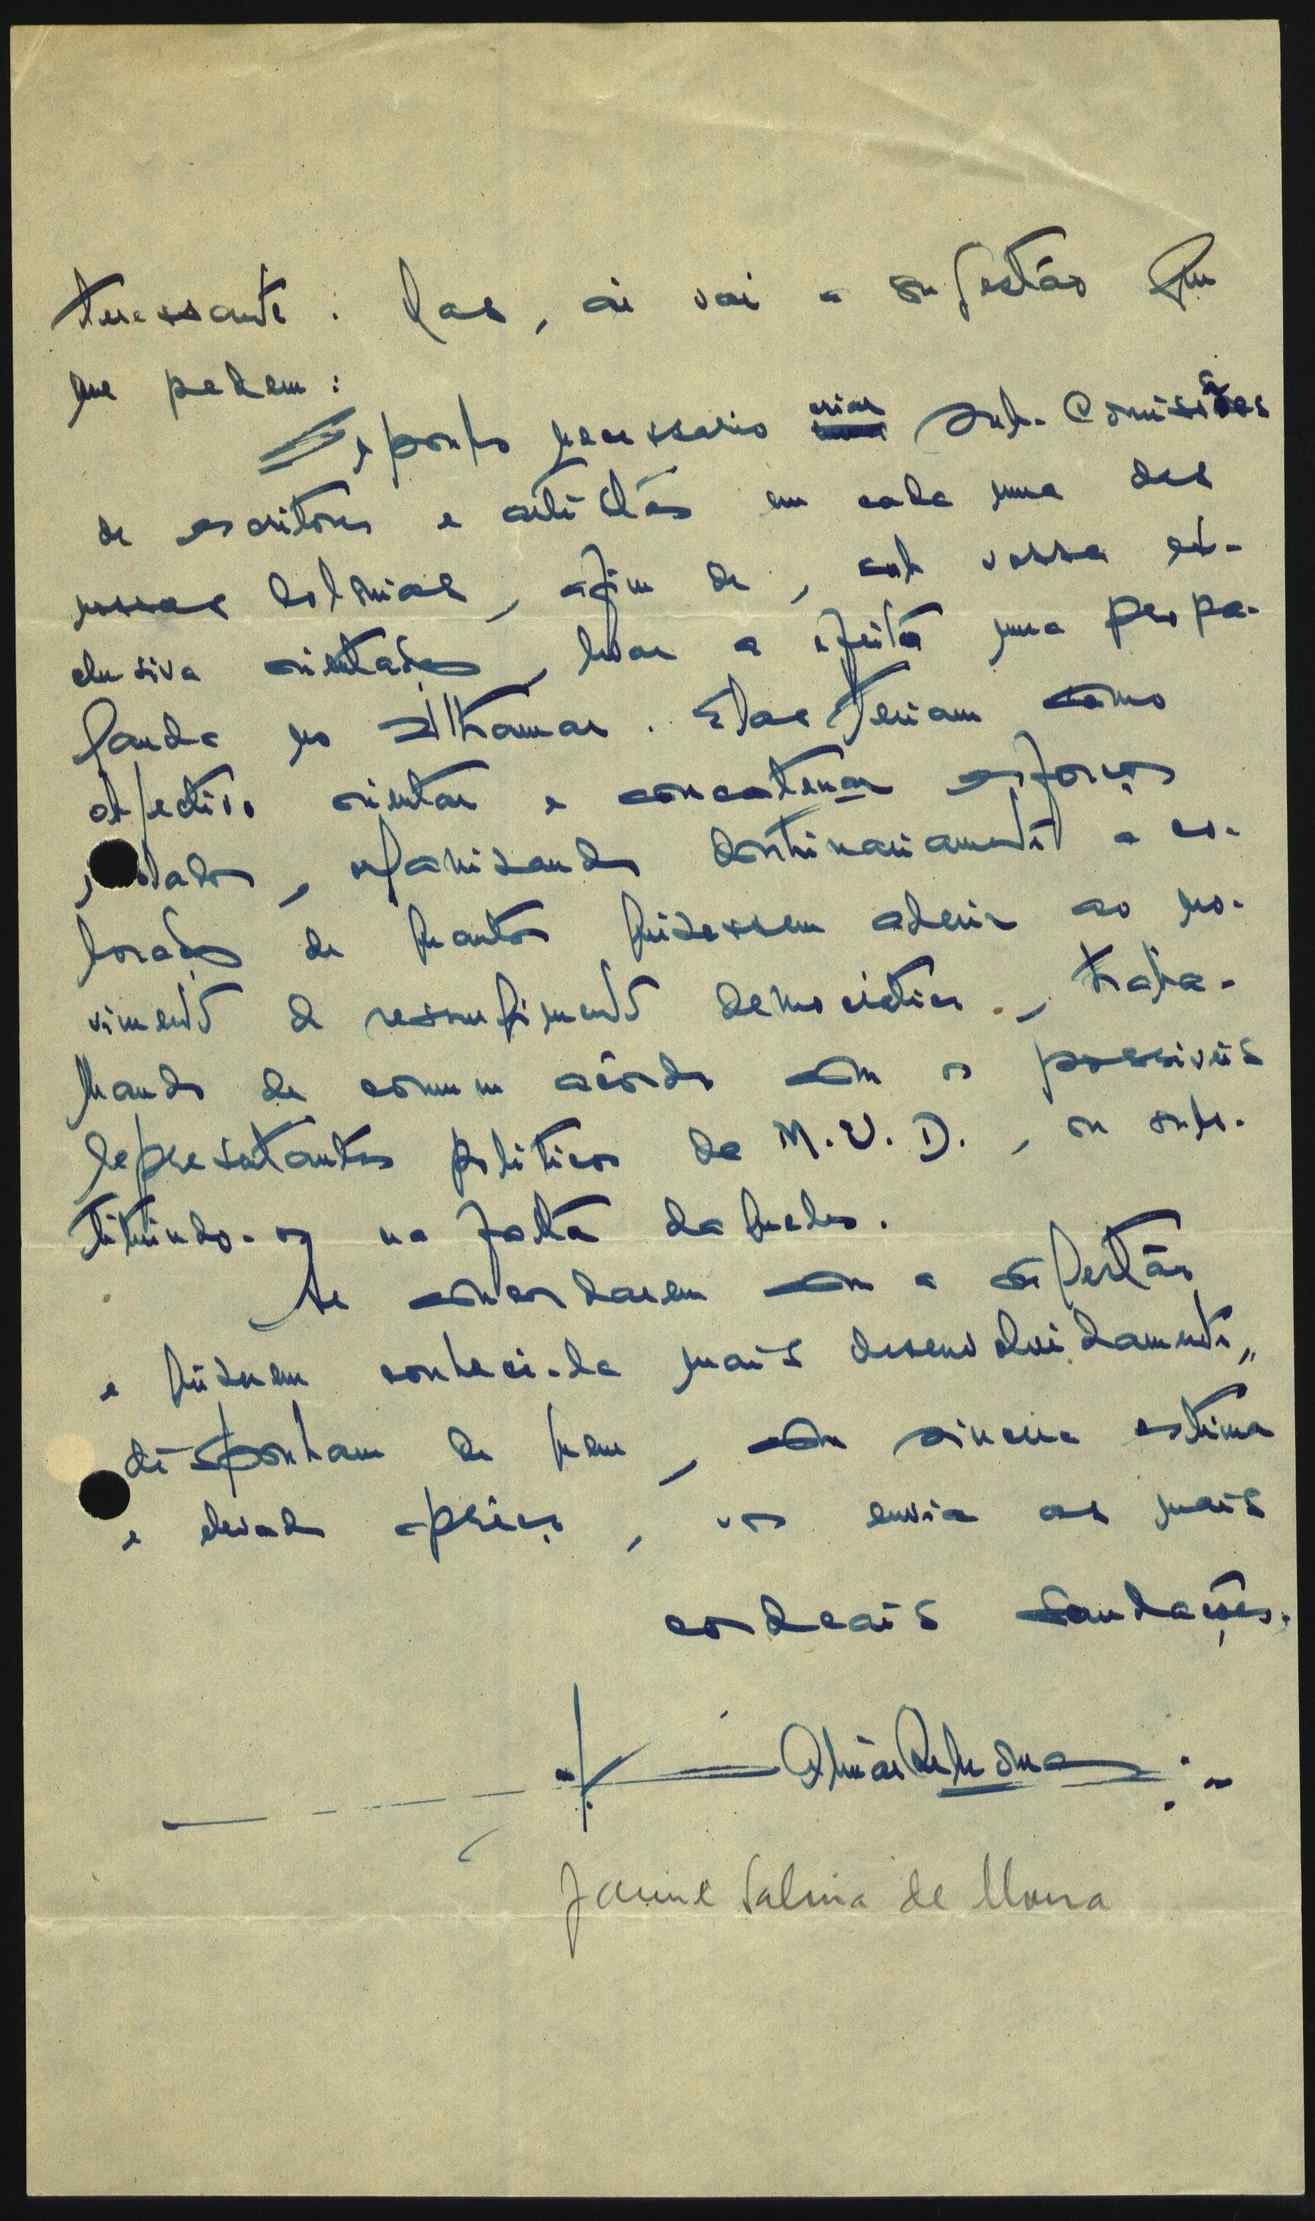 teressante: Mas, aí vai a sugestão que
me pedem:
Suponho necessario criar Sub-Comissões
de escritores e artistas em cada uma das
nossas Colonias, afim de, sob vossa ex-
clusiva orientação, levar a efeito uma propa-
ganda no Ultramar. Elas teriam como
objectivo orientar e concatenar esforços
, organisando a co-
de quantos quizessem aderir ao mo-
vimento de ressurgimento democratico, traba-
lhando de comum acôrdo com os possiveis
representantes politicos do M.U.D., ou subs-
tituindo-os na falta daqueles.
Se concordarem com a sugestão,
e quizerem conhece-la mais desenvolvidamente,
disponham de quem, com sincera estima
e elevado apreço, vos envia as mais
cordeais saudações.
Jaime Salvia de Moura